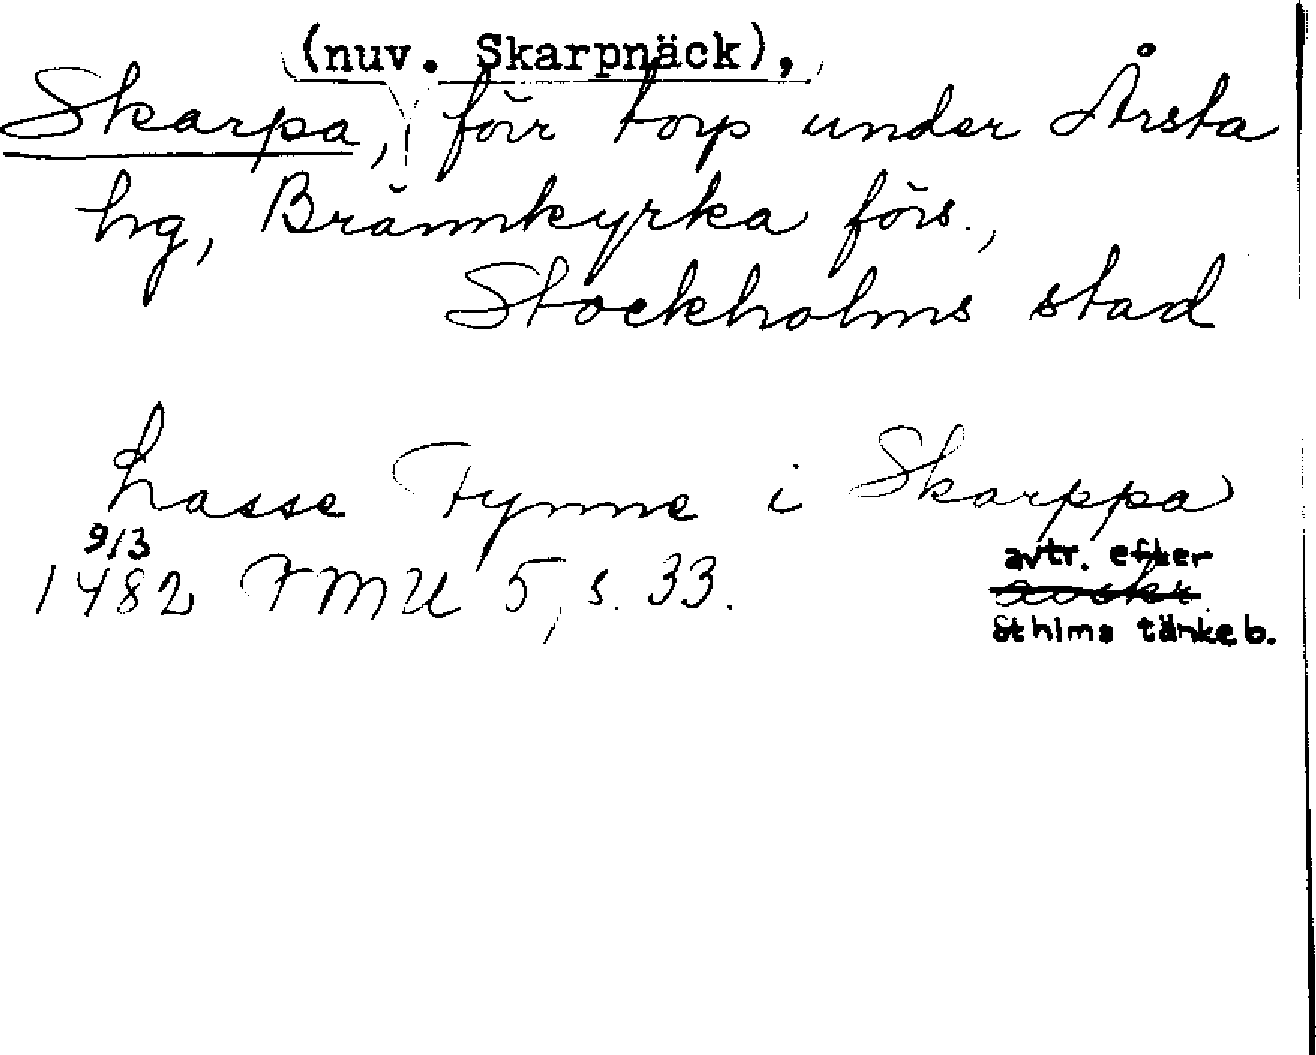 (nuv. Skarpnäck),
Skarpa, förr torp under Årsta
hg, Brännkyrka förs.,
Stockholms stad
Lasse Tynne i Skarppa
9/3
1482 FMU 5, s. 33.
avtr. efter
avskr.
Sthlms tänkeb.